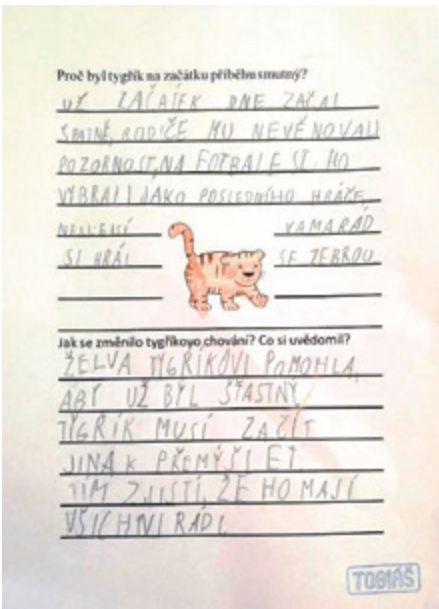 Proč byl tygřík na začátku příběhu smutný?
UŽ ZAČÁTEK DNE ZAČAL
ŠPATNĚ, RODIČE MU NEVĚNOVALI
POZORNOST, NA FOTBALE SI HO
VYBRALI JAKO POSLEDNÍHO HRÁČE
NEJLEPŠÍ KAMARÁD
SI HRÁL SE ZEBROU
Jak se změnilo tygříkovo chování? Co si uvědomil?
ŽELVA TYGŘÍKOVI POMOHLA,
ABY UŽ BYL ŠŤASTNÝ
TYGŘÍK MUSÍ ZAČÍT
JINAK PŘEMÝŠLET.
TÍM ZJISTÍ, ŽE HO MAJÍ
VŠICHNI RÁDI.
TOBIÁŠ